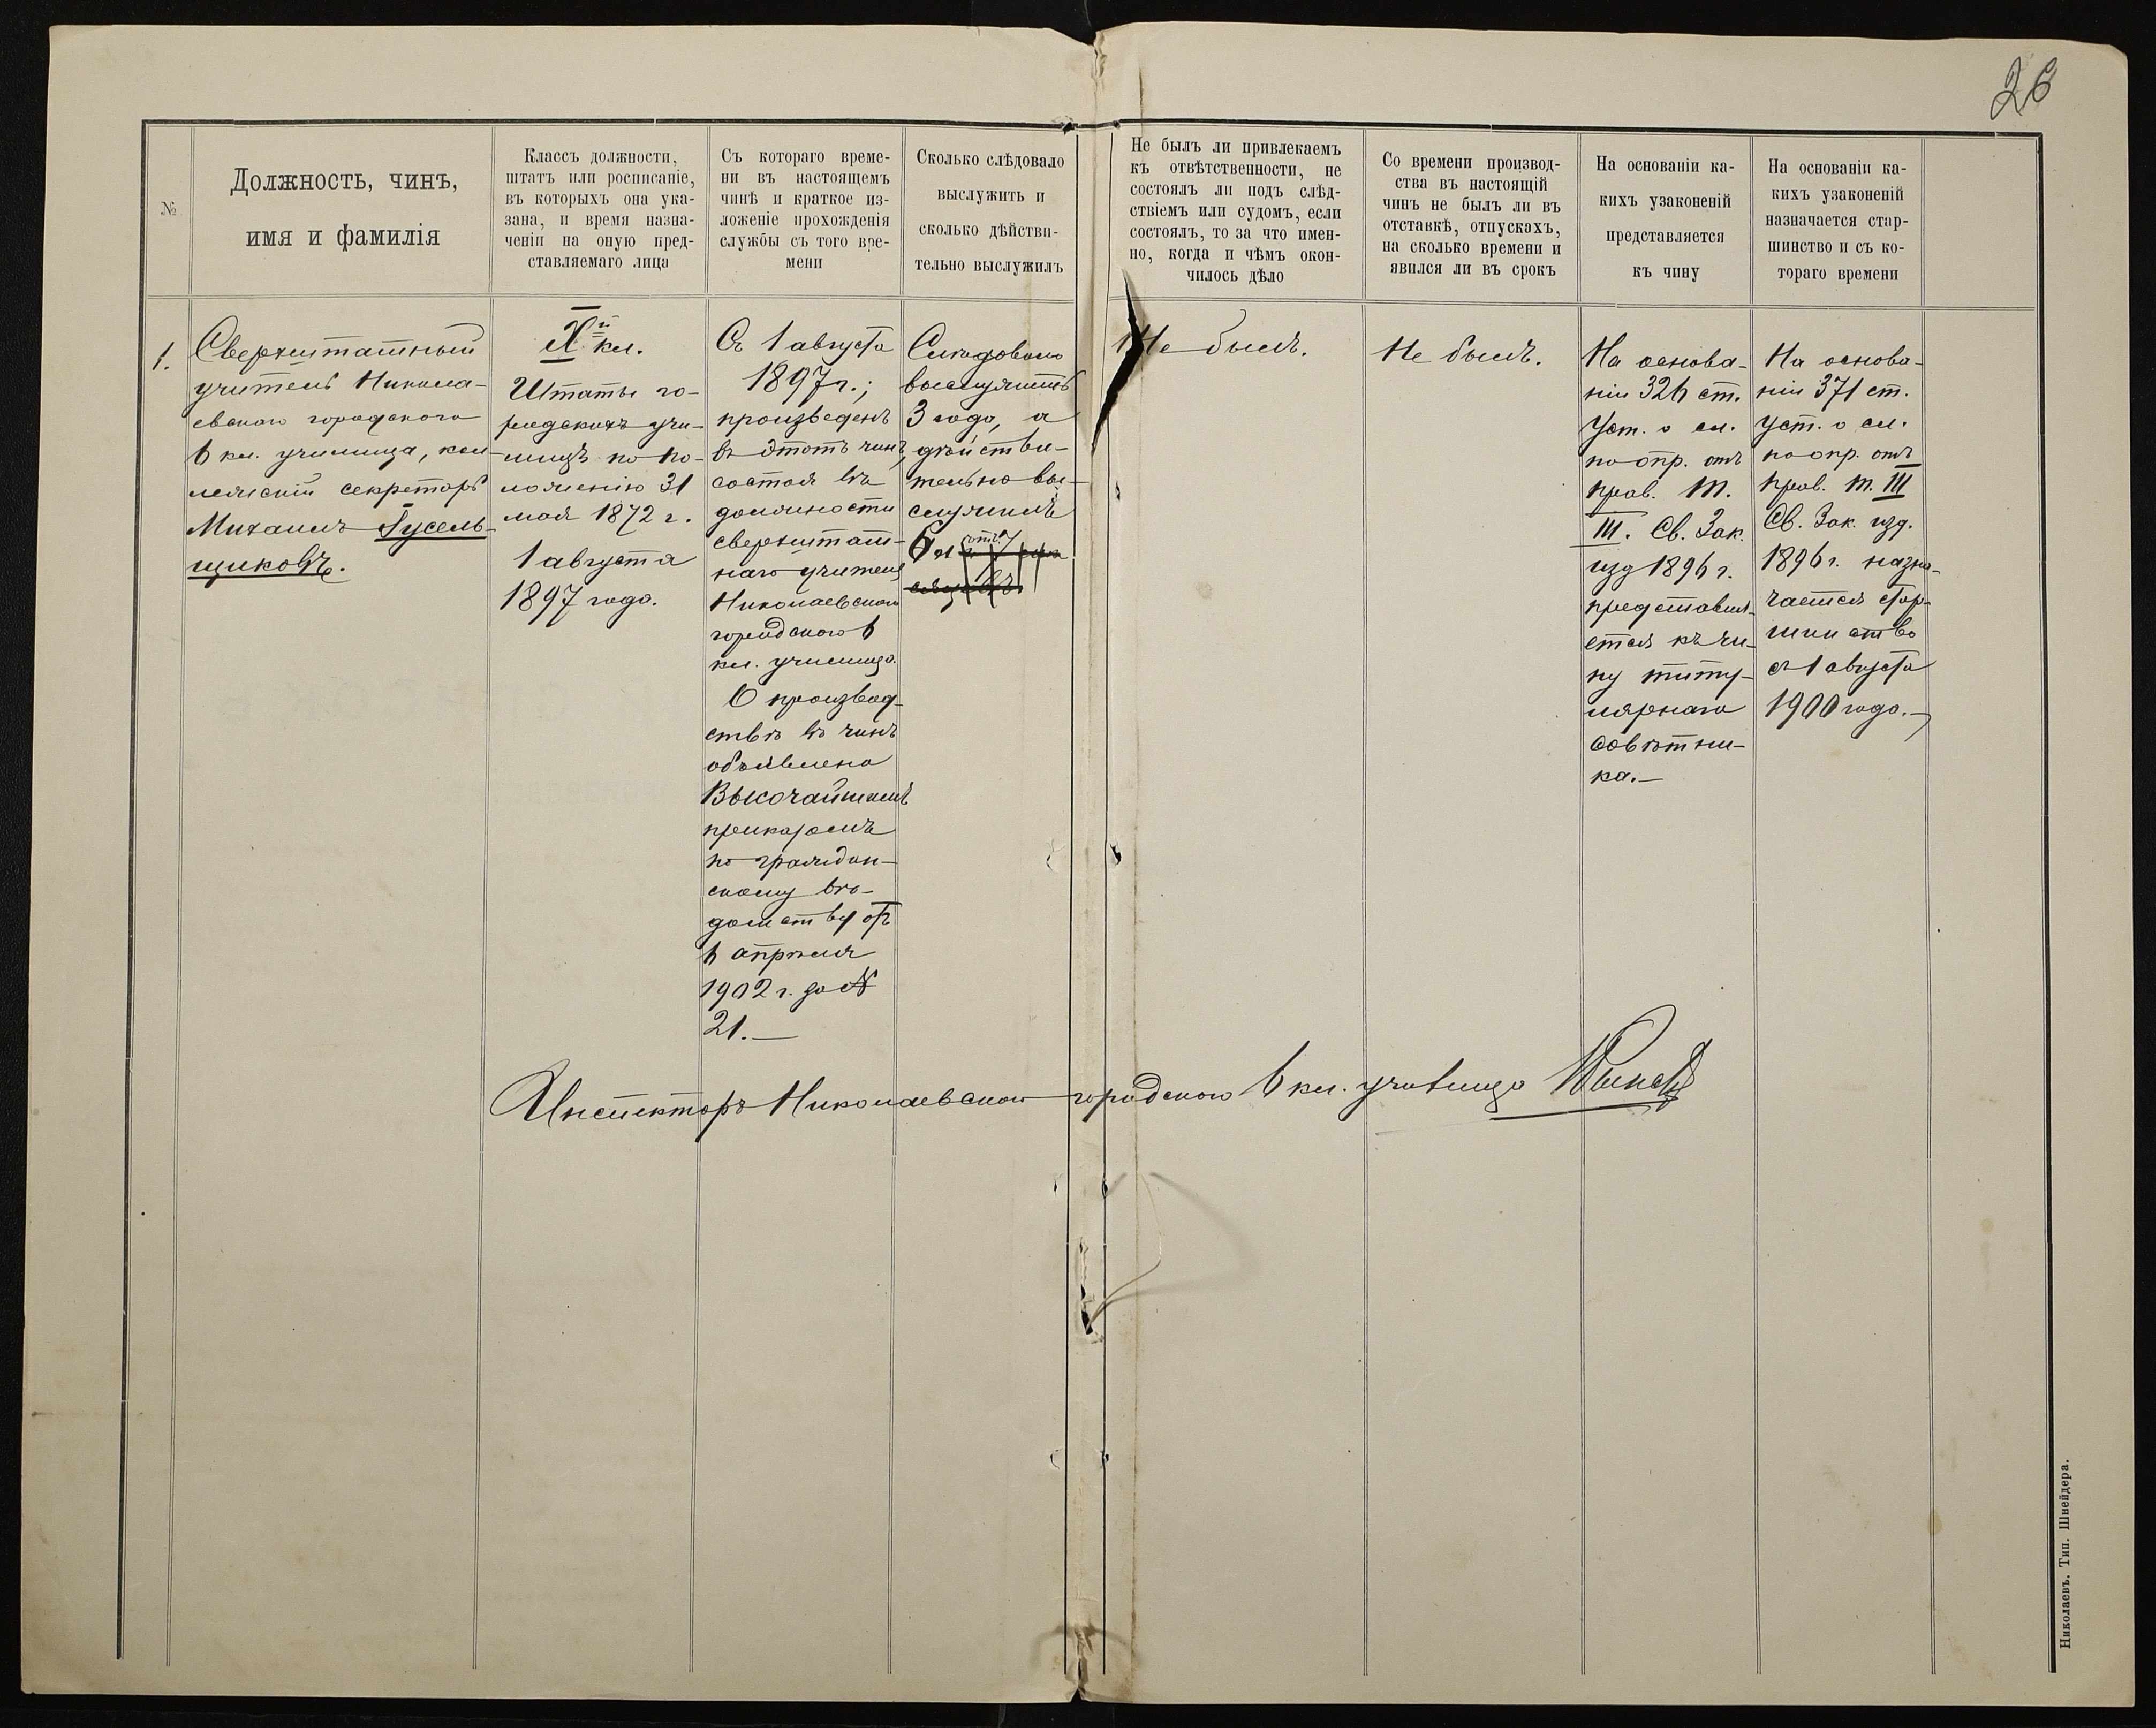 26
№
Должность, чинъ,
имя и фамилія
Классъ должности,
штатъ или росписаніе,
въ которыхъ она ука-
зана, и время назна-
ченіи на оную пред-
ставляемаго лица
Съ котораго време-
ни въ настоящемъ
чинѣ и краткое из-
ложеніе прохожденія
службы съ того вре-
мени
Сколько слѣдовало
выслужить и
сколько дѣйстви-
тельно выслужилъ
Не былъ ли привлекаемъ
къ отвѣтственности, не
состоялъ ли подъ слѣд-
ствіемъ или судомъ, если
состоялъ, то за что имен-
но, когда и чѣмъ окон-
чилось дѣло
Со времени производ-
ства въ настоящій
чинъ не былъ ли въ
отставкѣ, отпускахъ,
на сколько времени и
явился ли въ срокъ
На основаніи ка-
кихъ узаконеній
представляется
къ чину
На основаніи ка-
кихъ узаконеній
назначается стар-
шинство и съ ко-
тораго времени
1.
Сверхштатный
учитель Никола-
евскаго городского
6 кл. училища, кол-
лежскій секретарь
Михаилъ Гусель-
щиковъ.
Xй кл.
Штаты го-
родскихъ учи-
лищъ по по-
ложенію 31
мая 1872 г.
1 августа
1897 года.
Съ 1 августа
1897 г.;
произведенъ
въ этотъ чинъ,
состоя въ
должности
сверхштат-
наго учителя
Николаевскаго
городского 6
кл. училища.
О производ-
ствѣ въ чинъ
объявлено
Высочайшимъ
приказомъ
по граждан-
скому вѣ-
домству отъ
6 апрѣля
1902 г. за №
21.—
Слѣдовало
выслужить
3 года, а
дѣйстви-
тельно вы-
служилъ
6
Не былъ.
Не былъ.
На основа-
ніи 326 ст.
Уст. о сл.
по опр. отъ
прав. т.
III. Св. Зак.
изд 1896 г.
представля-
ется къ чи-
ну титу-
лярнаго
совѣтни-
ка.—
На основа-
ніи 371 ст.
уст. о сл.
по опр. отъ
прав. т. III
Св. Зак. изд.
1896 г. назна-
чается стар-
шинство
съ 1 августа
1900 года.—
Инспекторъ Николаевскаго городского 6 кл. училища
Николаевъ. Тип. Шнейдера.